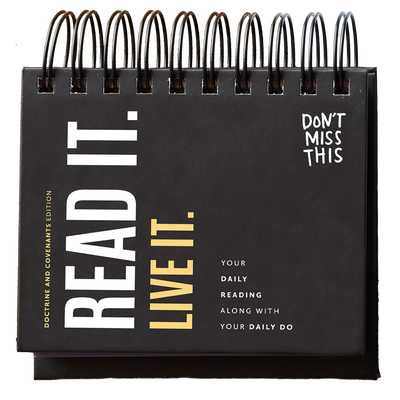 DOCTRINE AND COVENANTS EDITION
READ IT.
LIVE IT.
DON'T
MISS
THIS
YOUR
DAILY
READING
ALONG WITH
YOUR DAILY DO